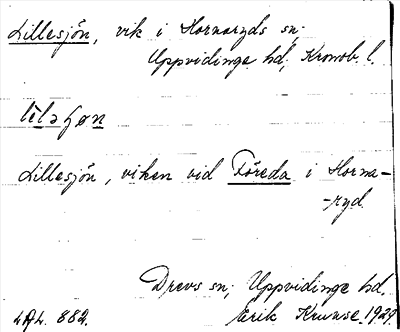 Lillesjön, vik i Hornaryds sn;
Uppvidinge hd, Kronob. l.
Lillesjön, viken vid Föreda i Horna-
-ryd.
Drevs sn, Uppvidinge hd.
LAL. 882. Erik 1929.